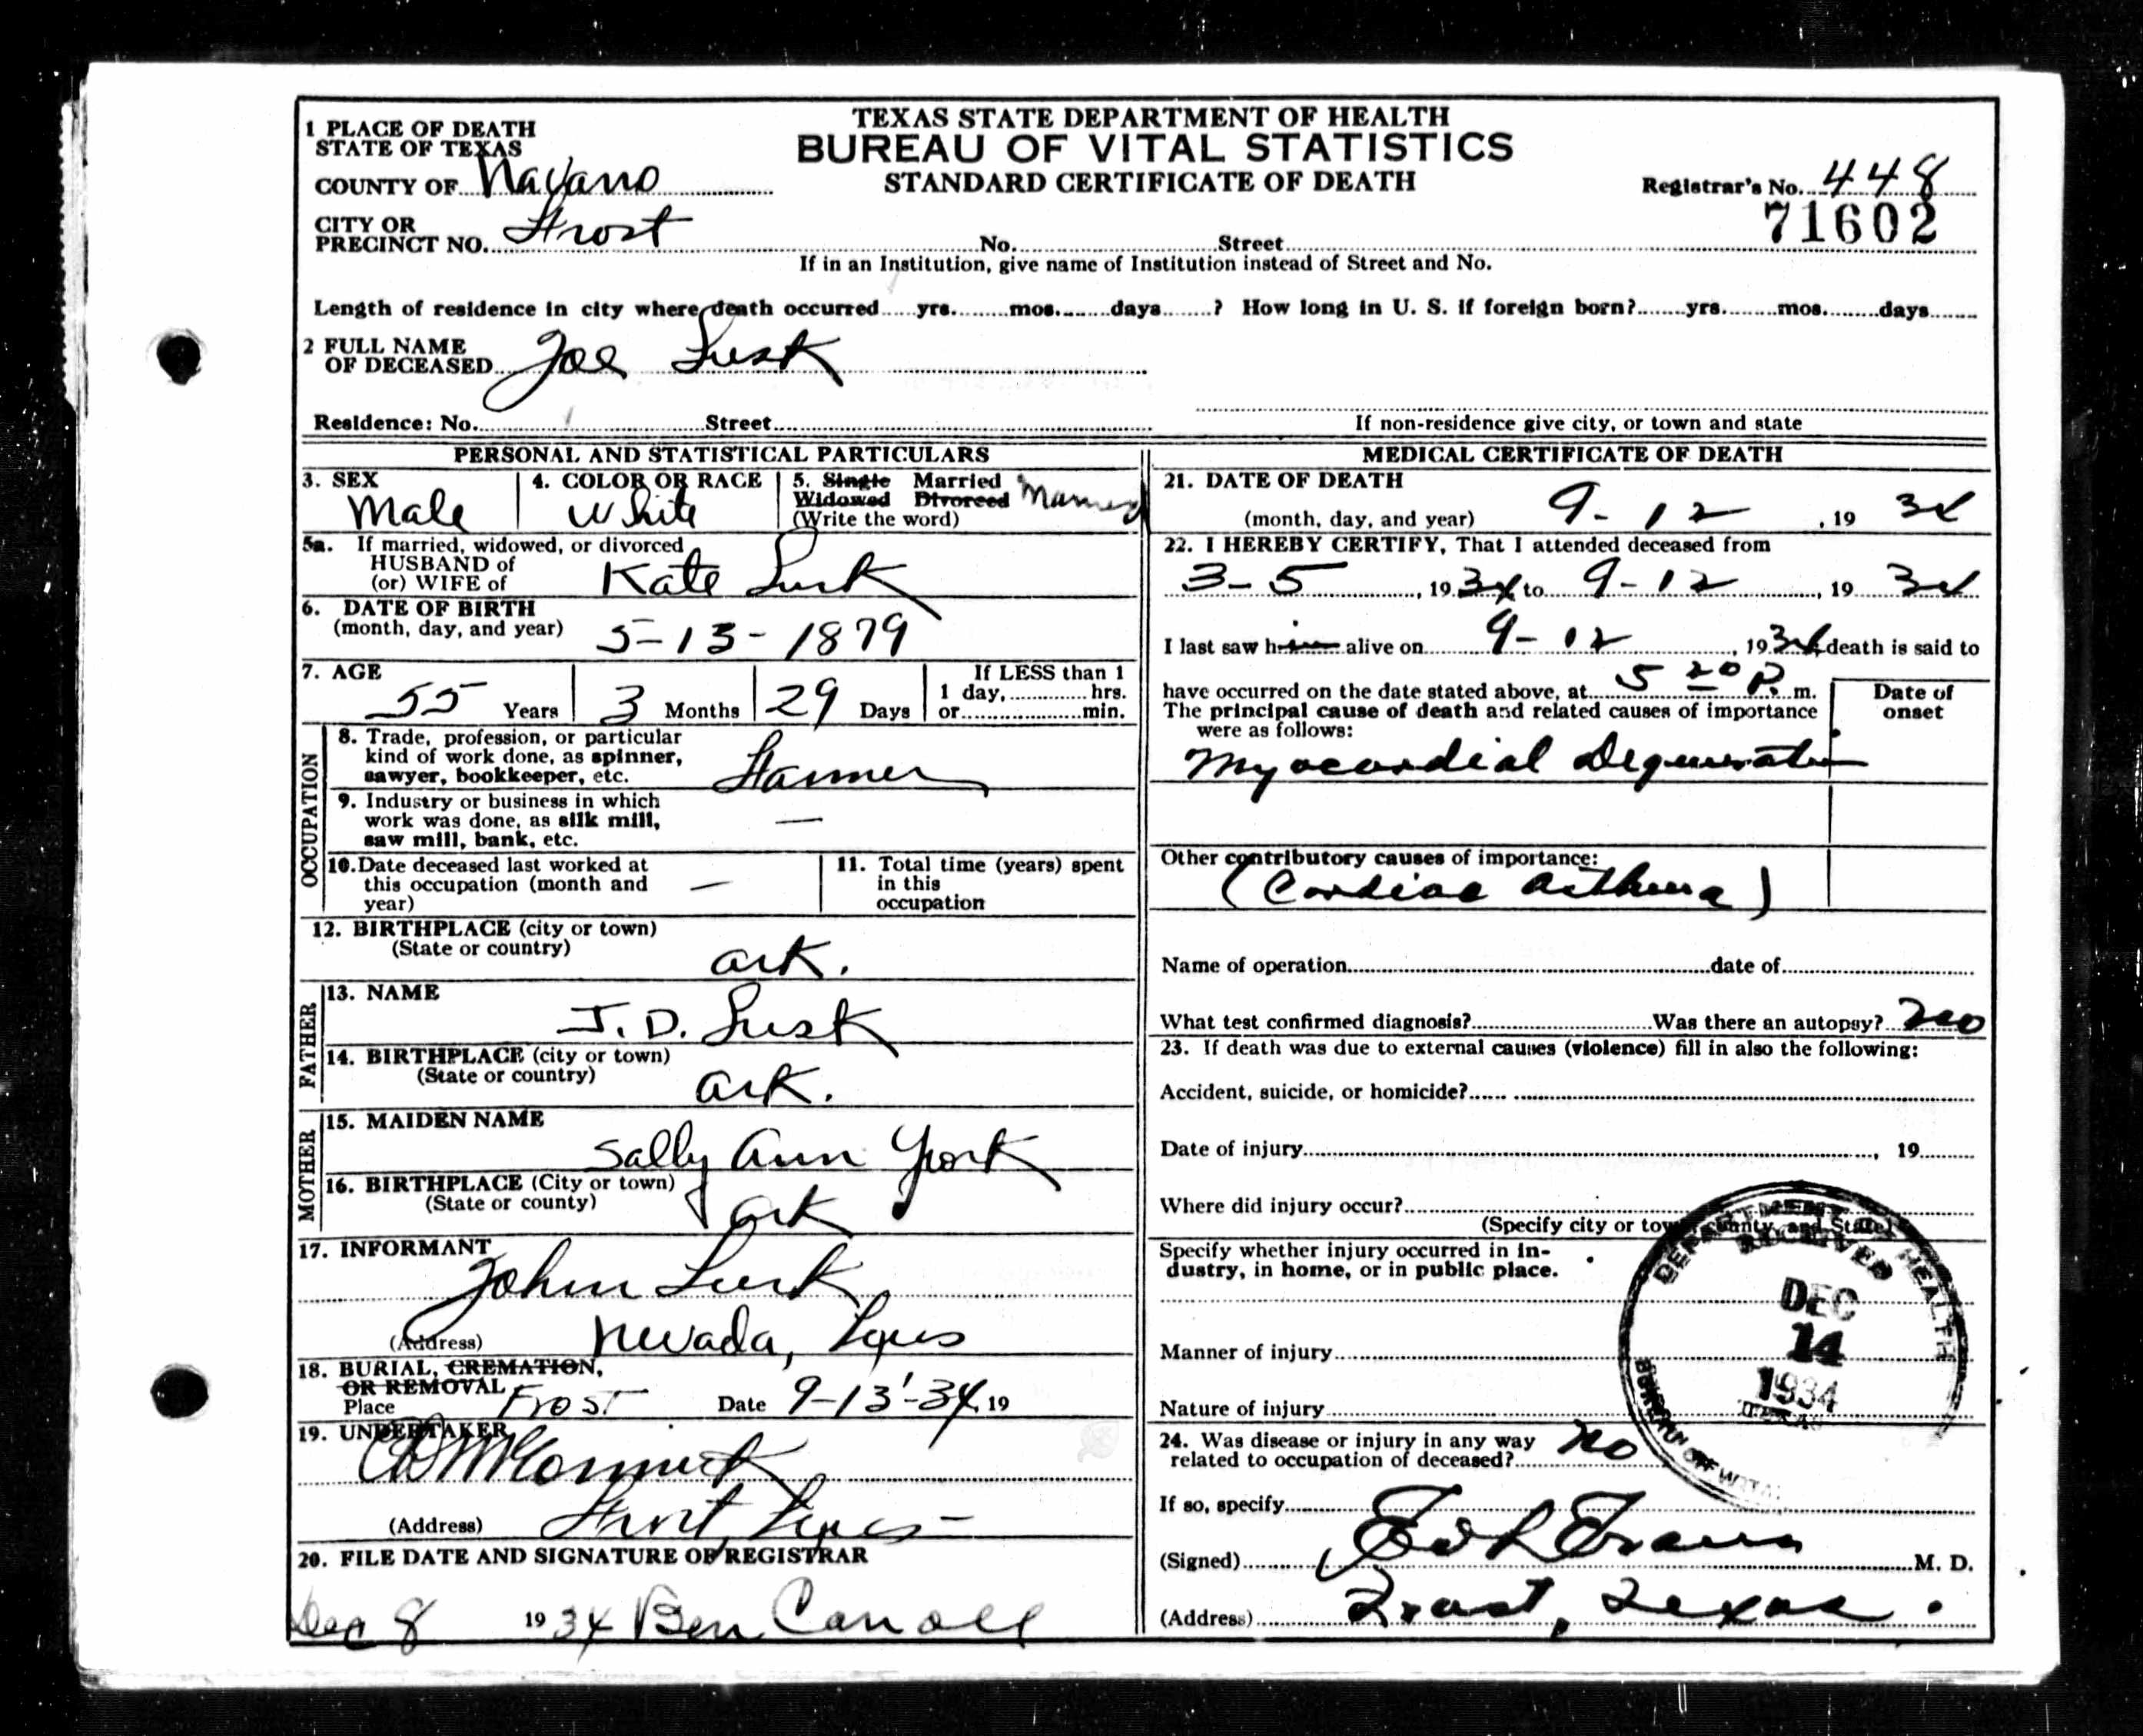 TEXAS STATE DEPARTMENT OF HEALTH
BUREAU OF VITAL STATISTICS
STANDARD CERTIFICATE OF DEATH
1 PLACE OF DEATH
STATE OF TEXAS
COUNTY OF Navarro
Registrar's No. 448
71602
CITY OR
PRECINCT NO. Frost No. Street
If in an Institution, give name of Institution instead of Street and No.
Length of residence in city where death occurred yrs. mos. days ? How long in U. S. if foreign born? yrs. mos. days
2 FULL NAME
OF DECEASED Joe Lusk
Residence: No. Street
If non-residence give city, or town and state
PERSONAL AND STATISTICAL PARTICULARS
3. SEX
Male
4. COLOR OR RACE
White
5. Single Married
Widowed Divorced
(Write the word)
Married
5a. If married, widowed, or divorced
HUSBAND of
(or) WIFE of
Kate Lusk
6. DATE OF BIRTH
(month, day, and year) 5-13-1879
7. AGE
55 Years 3 Months 29 Days
If LESS than 1
1 day, hrs.
or min.
OCCUPATION
8. Trade, profession, or particular
kind of work done, as spinner,
sawyer, bookkeeper, etc.
Farmer
9. Industry or business in which
work was done, as silk mill,
saw mill, bank, etc.
—
10. Date deceased last worked at
this occupation (month and
year)
—
11. Total time (years) spent
in this
occupation
12. BIRTHPLACE (city or town)
(State or country)
Ark.
FATHER
13. NAME
J. D. Lusk
14. BIRTHPLACE (city or town)
(State or country)
Ark.
MOTHER
15. MAIDEN NAME
Sally Ann York
16. BIRTHPLACE (City or town)
(State or county)
Ark
17. INFORMANT
John Lusk
(Address) Nevada, Texas
18. BURIAL, CREMATION,
OR REMOVAL
Place Frost Date 9-13-34 19
19. UNDERTAKER
(Address) Frost, Texas -
20. FILE DATE AND SIGNATURE OF REGISTRAR
Dec 8 1934 Ben Carroll
MEDICAL CERTIFICATE OF DEATH
21. DATE OF DEATH
(month, day, and year) 9-12, 19 34
22. I HEREBY CERTIFY, That I attended deceased from
3-5, 19 34 to 9-12, 19 34
I last saw him alive on 9-12, 19 34 death is said to
have occurred on the date stated above, at 5 20 P. m.
The principal cause of death and related causes of importance
were as follows:
Date of
onset
Myocardial Degeneration
Other contributory causes of importance:
(Cardiac Asthma)
Name of operation date of
What test confirmed diagnosis? Was there an autopsy? no
23. If death was due to external causes (violence) fill in also the following:
Accident, suicide, or homicide?
Date of injury , 19
Where did injury occur?
(Specify city or town, county, and State)
Specify whether injury occurred in in-
dustry, in home, or in public place.
Manner of injury
Nature of injury
24. Was disease or injury in any way
related to occupation of deceased? no
If so, specify
(Signed) M. D.
(Address) Frost, Texas.
DEPARTMENT HEALTH
RECEIVED
DEC
14
1934
TEXAS
BUREAU OF VITAL